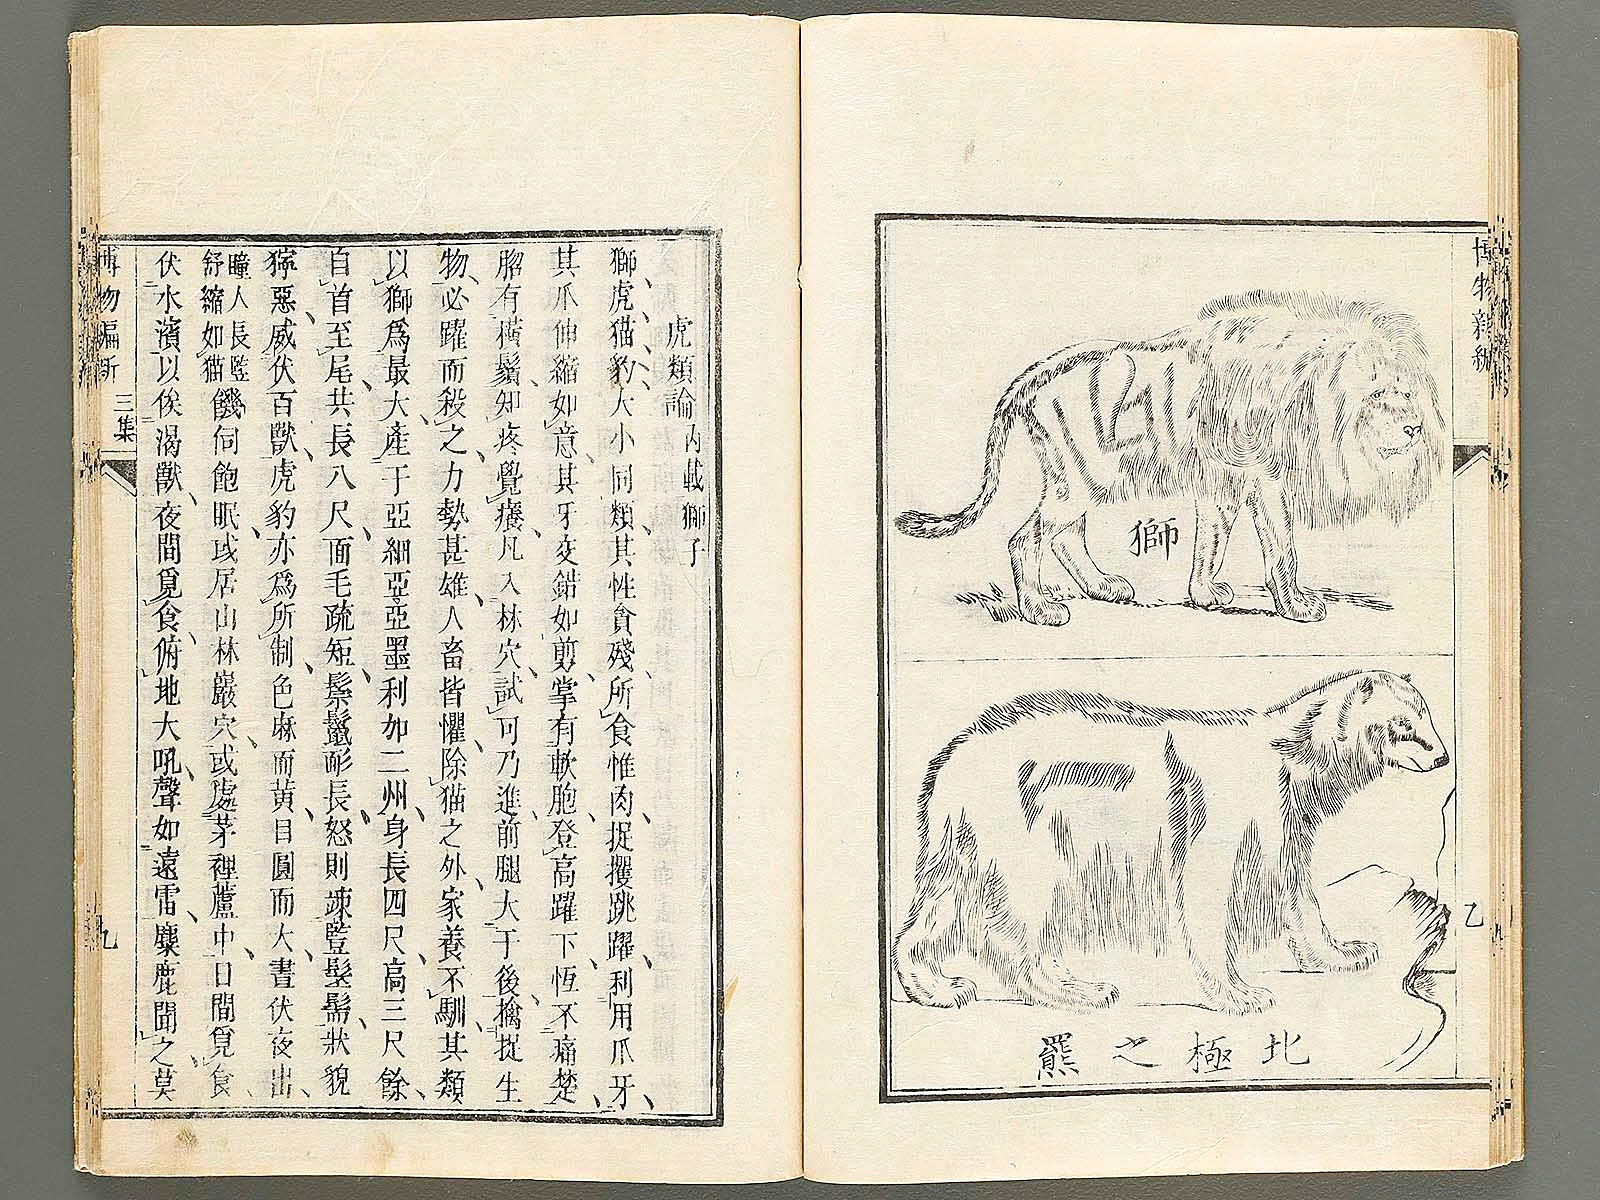 博物新編
獅
北極之羆
乙
虎類論 內載獅子
獅虎猫豹大小同類其性貪殘所食惟肉捉攫跳躍利用爪牙
其爪伸縮如意其牙交錯如剪掌有軟胞登高躍下恆不痛楚
腮有橫鬚知疼覺癢凡入林穴試可乃進前腿大于後擒捉生
物必躍而殺之力勢甚雄人畜皆懼除猫之外家養不馴其類
以獅爲最大產于亞細亞亞墨利加二州身長四尺高三尺餘
自首至尾共長八尺面毛疏短鬃鬣耏長怒則竦竪髮髵狀貌
獰惡威伏百獸虎豹亦爲所制色麻而黃目圓而大晝伏夜出
瞳人長竪舒縮如猫饑伺飽眠或居山林巖穴或處茅裡蘆中日間覓食
伏水濱以俟渴獸夜間覓食俯地大吼聲如遠雷麋鹿聞之莫
博物編新 三集
九